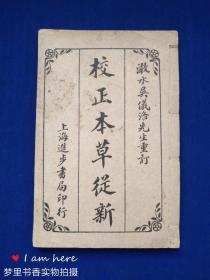 澉水吳儀洛先生重訂
校正本草從新
上海進步書局印行
I am here
梦里书香实物拍摄